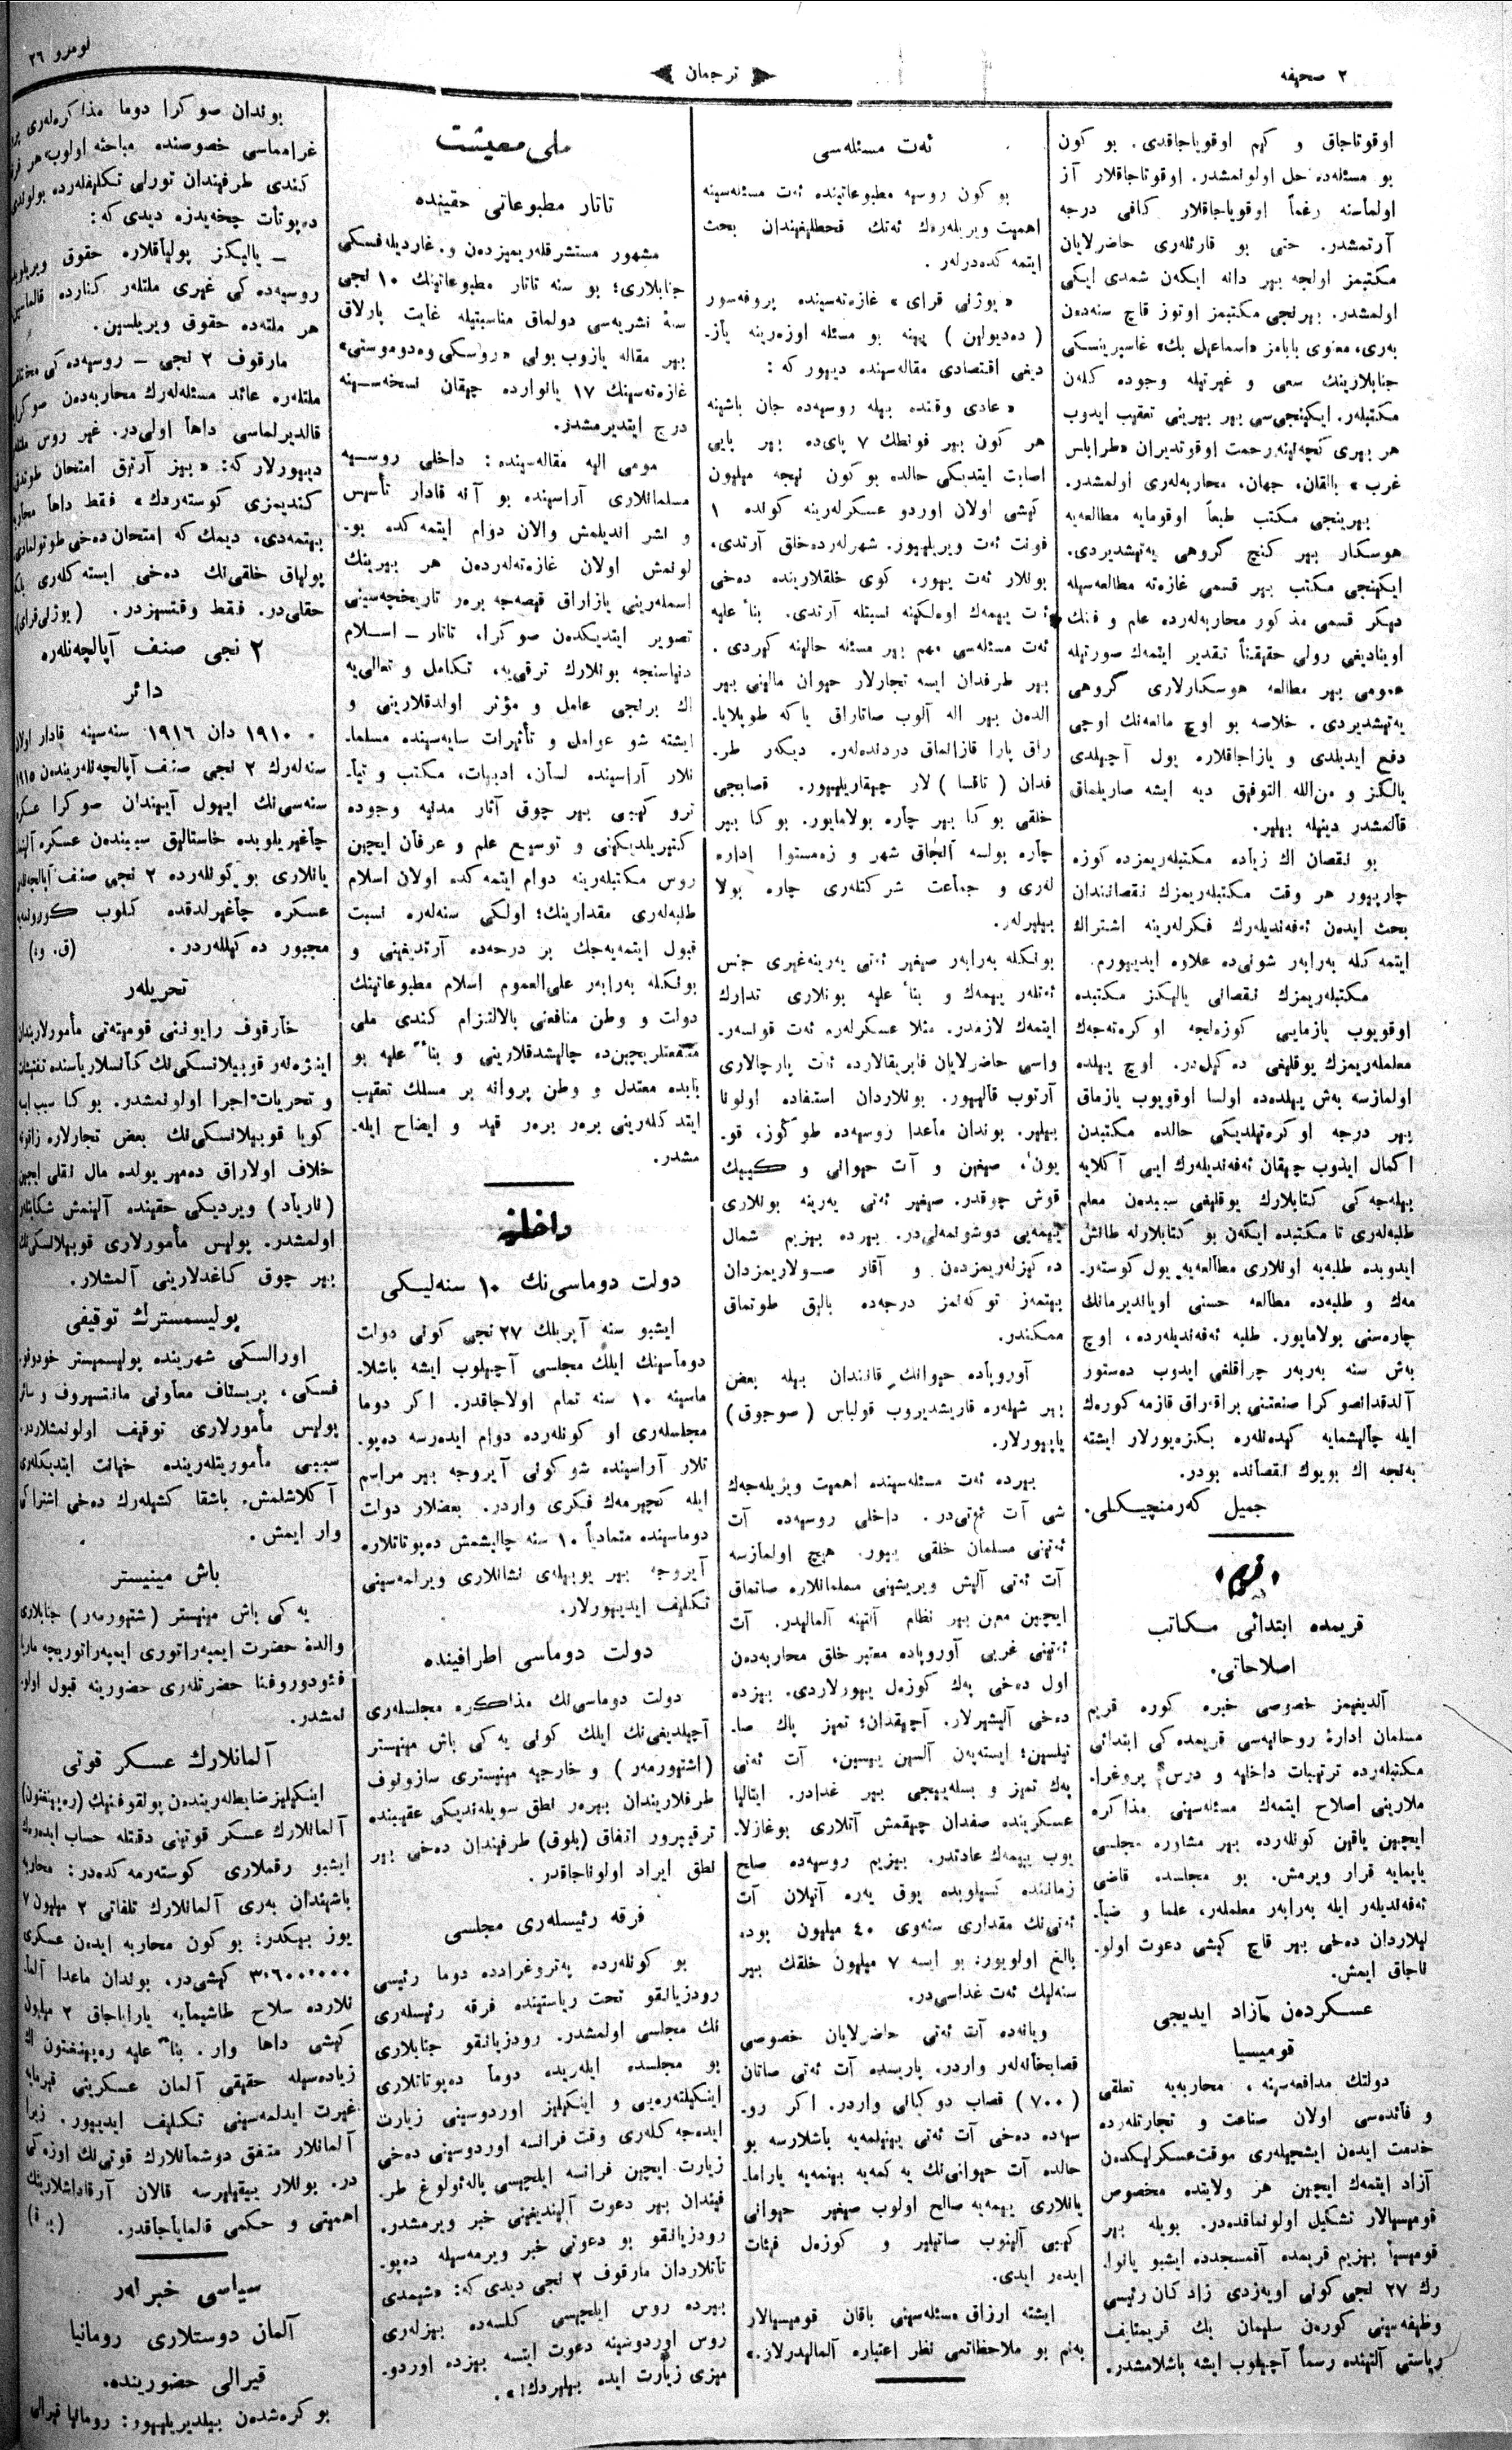 ۲ صحیفه
ترجمان
نومرو ۲٦
اوقوتاجاق و کیم اوقویاجاقدی. بو کون
بو مسئله‌ده حل اولونمشدر. اوقوتاجاقلار آز
اولماسنه رغماً اوقویاجاقلار کافی درجه
آرتمشدر. حتی بو قارئلەری حاضرلایان
مکتبمز اولجه بیر دانه ایکەن شمدی ایکی
اولمشدر. بیرنجی مکتبمز اوتوز قاچ سنەدەن
بەری، معنوی بابامز «اسماعیل بك» غاسپرینسکی
جنابلارینك سعی و غیرتیله وجوده کلەن
مکتبلەر. ایکینجی‌سی بیر بیرینی تعقیب ایدوب
هر بیری کچەلینه رحمت اوقوتدیران «طرابلس
غرب» بالقان، جهان، محاربەلەری اولمشدر.
بیرینجی مکتب طبعاً اوقومایه مطالعەیه
هوسکار بیر کنج کروهی یەتیشدیردی.
ایکینجی مکتب بیر قسمی غازەته مطالعەسیله
دیکر قسمی مذکور محاربەلەرده علم و فنك
اوینادیغی رولی حقیقتاً تقدیر ایتمەك صورتیله
عمومی بیر مطالعه هوسکارلاری کروهی
یەتیشدیردی. خلاصه بو اوچ مانعەنك اوچی
دفع ایدیلدی و یازاجاقلاره یول آچیلدی
یالکز و من‌الله التوفیق دیه ایشه صاریلماق
قالمشدر دینیله بیلیر.
بو نقصان اك زیاده مکتبلەریمزده کوزه
چارپیور هر وقت مکتبلەریمزك نقصانندان
بحث ایدەن ئەفەندیلەرك فکرلەرینه اشتراك
ایتمەکله بەرابەر شونی‌ده علاوه ایدییورم.
مکتبلەریمزك نقصانی یالیکز مکتبده
اوقویوب یازمایی کوزەلجه اوکرەتەجەك
معلملەریمزك یوقلیغی دەکیل‌در. اوچ ییلده
اولمازسه بەش ییلدەده اولسا اوقویوب یازماق
بیر درجه اوکرەتیلدیکی حالده مکتبدن
اکمال ایدوب چیقان ئەفەندیلەرك ایی آکلایه
بیلەجەکی کتابلارك یوقلیغی سببدەن معلم
طلبەلەری تا مکتبده ایکەن بو کتابلارله طانش
ایدوبده طلبەیه اونلاری مطالعەیه یول کوستەر-
مەك و طلبەده مطالعه حسنی اویاندیرمانك
چارەسنی بولامایور. طلبه ئەفەندیلەرده، اوچ
بەش سنه بەربەر چراقلغی ایدوب دەستور
آلدقدانصوکرا صنعتنی براقەراق قازمه کورەك
ایله چالیشمایه کیدەنلەره بکزەیورلار ایشته
بەنجه اك بویوك نقصانده بودر.
جمیل کەرمنچیکلی.
«قریم»
قریمده ابتدائی مکاتب
اصلاحاتی.
آلدیغیمز خصوصی خبره کوره قریم
مسلمان ادارۀ روحانیەسی قریمده‌کی ابتدائی
مکتبلەرده ترتیبات داخلیه و درس پروغرا-
ملارینی اصلاح ایتمەك مسئلەسینی مذاکره
ایچین یاقین کونلەرده بیر مشاوره مجلسی
یاپمایه قرار ویرمش. بو مجلسده قاضی
ئەفەندیلەر ایله بەرابەر معلملەر، علما و ضیا-
لیلاردان دەخی بیر قاچ کیشی دعوت اولو-
ناجاق ایمش.
عسکردەن آزاد ایدیجی
قومیسیا
دولتك مدافعەسینه، محاربەیه تعلقی
و فائدەسی اولان صناعت و تجارتلەرده
خدمت ایدەن ایشچیلەری موقت عسکرلیکدەن
آزاد ایتمەك ایچین هر ولایتده مخصوص
قومیسیالار تشکیل اولونماقدەدر. بویله بیر
قومیسیا بیزیم قریمده آقمسجدده ایشبو یانوا-
رك ۲۷ نجی کونی اویەزدی زادکان رئیسی
وظیفەسینی کورەن سلیمان بك قریمتایف
ریاستی آلتینده رسماً آچیلوب ایشه باشلامشدر.
ئەت مسئلەسی
بو کون روسیه مطبوعاتینده ئەت مسئلەسینه
اهمیت ویریلەرەك ئەتك قحطلیغیندان بحث
ایتمەکدەدرلەر.
«یوژنی قرای» غازەتەسینده پروفەسور
(دەدیولین) یینه بو مسئله اوزەرینه یاز-
دیغی اقتصادی مقالەسینده دییور که:
«عادی وقتده بیله روسیەده جان باشینه
هر کون بیر فونطك ۷ پای‌ده بیر پایی
اصابت ایتدیکی حالده بو کون نیجه میلیون
کیشی اولان اوردو عسکرلەرینه کونده ۱
فونت ئەت ویریلییور. شهرلەرده خلق آرتدی،
بونلار ئەت ییور، کوی خلقلارینده دەخی
ئەت ییمەك اوەلکینه نسبتله آرتدی. بناً علیه
ئەت مسئلەسی مهم بیر مسئله حالینه کیردی.
بیر طرفدان ایسه تجارلار حیوان مالینی بیر
الدەن بیر اله آلوب صاتاراق یاکه طوپلایا-
راق پارا قازانماق دردندەلەر. دیکەر طر-
فدان (تاقسا) لار چیقاریلییور. قصابجی
خلقی بوکا بیر چاره بولامایور. بوکا بیر
چاره بولسه آنجاق شهر و زەمستوا اداره
لەری و جماعت شرکتلەری چاره بولا
بیلیرلەر.
بونکله بەرابەر صیغیر ئەتی یەرینەغیری جنس
ئەتلەر ییمەك و بناً علیه بونلاری تدارك
ایتمەك لازمدر. مثلا عسکرلەره ئەت قونسەر-
واسی حاضرلایان فابریقالارده ئەت پارچالاری
آرتوب قالییور. بونلاردان استفاده اولونا
بیلیر. بوندان ماعدا روسیەده طوکوز، قو-
یون، صیغین و آت حیوانی و کییك
قوش چوقدر. صیغیر ئەتی یەرینه بونلاری
ییمەیی دوشونمەلی‌در. بیرده بیزیم شمال
دەکیزلەریمزدەن و آقار صولاریمزدان
بیتمەز توکەنمز درجەده بالیق طوتماق
ممکندر.
آوروپاده حیوانك قانندان بیله بعض
بیر شیلەره قاریشدیروب قولباس (صوجوق)
یاپیورلار.
بیرده ئەت مسئلەسینده اهمیت ویریلەجەك
شی آت ئەتی‌در. داخلی روسیەده آت
ئەتینی مسلمان خلقی ییور. هیچ اولمازسه
آت ئەتی آلیش ویریشینی مسلمانلاره صاتماق
ایچین معین بیر نظام آلتینه آلمالیدر. آت
ئەتینی غربی آوروپاده معتبر خلق محاربەدەن
اول دەخی پەك کوزەل ییورلاردی. بیزده
دەخی آلیشیرلار. آچیقدان؛ تمیز پاك صا-
تیلسین؛ ایستەیەن آلسین ییسین، آت ئەتی
پەك تمیز و بسلەییجی بیر غدادر. ایتالیا
عسکرینده صفدان چیقمش آتلاری بوغازلا-
یوب ییمەك عادتدر. بیزیم روسیەده صلح
زماننده کسیلوبده یوق یەره آتیلان آت
ئەتی‌نك مقداری سنەوی ٤٠ میلیون پوده
بالغ اولویور؛ بو ایسه ۷ میلیون خلقك بیر
سنەلیك ئەت غداسی‌در.
ویانەده آت ئەتی حاضرلایان خصوصی
قصابخانەلەر واردر. پاریسده آت ئەتی صاتان
(۷۰۰) قصاب دوکانی واردر. اکر رو-
سیەده دەخی آت ئەتی یینیلمەیه باشلارسه بو
حالده آت حیوانی‌نك یەکمەیه بینمەیه یاراما-
یانلاری ییمەیه صالح اولوب صیغیر حیوانی
کیبی آلینوب صاتیلیر و کوزەل فیئات
ایدەر ایدی.
ایشته ارزاق مسئلەسینی باقان قومیسیالار
بەنم بو ملاحظاتمی نظر اعتباره آلمالیدرلار.»
ملی معیشت
تاتار مطبوعاتی حقینده
مشهور مستشرقلەریمیزدەن و. غاردیلەفسکی
جنابلاری؛ بو سنه تاتار مطبوعاتینك ۱۰ نجی
سنۀ نشریەسی دولماق مناسبتیله غایت پارلاق
بیر مقاله یازوب بونی «روسکی وەدوموستی»
غازەتەسینك ۱۷ یانوارده چیقان نسخەسینه
درج ایتدیرمشدر.
مومی الیه مقالەسینده: داخلی روسیه
مسلمانلاری آراسینده بو آنه قادار تأسیس
و نشر اندیلمش والان دوام ایتمەکده بو-
لونمش اولان غازەتەلەردەن هر بیرینك
اسملەرینی یازاراق قیصەجه برەر تاریخچەسینی
تصویر ایتدیکدەن صوکرا، تاتار — اسلام
دنیاسنجه بونلارك ترقی‌یه، تکامل و تعالی‌یه
اك برنجی عامل و مؤثر اولدقلارینی و
ایشته شو عوامل و تأثیرات سایەسینده مسلما-
نلار آراسینده لسان، ادبیات، مکتب و تیا-
ترو کیبی بیر چوق آثار مدنیه وجوده
کتیریلدیکینی و توسیع علم و عرفان ایچین
روس مکتبلەرینه دوام ایتمەکده اولان اسلام
طلبەلەری مقدارینك؛ اولکی سنەلەره نسبت
قبول ایتمەیەجك بر درجەده آرتدیغینی و
بونکله بەرابەر علی‌العموم اسلام مطبوعاتینك
دولت و وطن منافعنی بالالتزام کندی ملی
منفعتلریچین‌ده چالیشدقلارینی و بناً علیه بو
بابده معتدل و وطن پروانه بر مسلك تعقیب
ایتدکلەرینی برەر برەر قید و ایضاح ایله-
مشدر.
داخلیه
دولت دوماسی‌نك ۱۰ سنەلیکی
ایشبو سنه آپریلك ۲۷ نجی کونی دولت
دوماسینك ایلك مجلسی آچیلوب ایشه باشلا-
ماسینه ۱۰ سنه تمام اولاجاقدر. اکر دوما
مجلسلەری او کونلەرده دوام ایدەرسه دەپو-
تلار آراسینده شو کونی آیروجه بیر مراسم
ایله کچیرمەك فکری واردر. بعضلار دولت
دوماسینده متمادیاً ۱۰ سنه چالیشمش دەپوتاتلاره
آیروجه بیر یوبیلەی نشانلاری ویرلمەسینی
تکلیف ایدییورلار.
دولت دوماسی اطرافینده
دولت دوماسی‌نك مذاکره مجلسلەری
آچیلدیغی‌نك ایلك کونی یەکی باش مینیستر
(اشتیورمەر) و خارجیه مینیستری سازونوف
طرفلاریندان بیرەر نطق سویلەندیکی عقیبینده
ترقیپرور اتفاق (بلوق) طرفیندان دەخی بیر
نطق ایراد اولوناجاقدر.
فرقه رئیسلەری مجلسی
بو کونلەرده پەتروغرادده دوما رئیسی
رودزیانقو تحت ریاستینده فرقه رئیسلەری
نك مجلسی اولمشدر. رودزیانقو جنابلاری
بو مجلسده ایلەریده دوما دەپوتاتلاری
اینکیلتەرەیی و اینکیلیز اوردوسینی زیارت
ایدەجەکلەری وقت فرانسه اوردوسینی دەخی
زیارت ایچین فرانسه ایلچیسی پالەئولوغ طر-
فیندان بیر دعوت آلیندیغینی خبر ویرمشدر.
رودزیانقو بو دعوتی خبر ویرمەسیله دەپو-
تاتلاردان مارقوف ۲ نجی دیدی که: «شیمدی
بیرده روس ایلچیسی کلسەده بیزلەری
روس اوردوسینه دعوت ایتسه بیزده اوردو-
میزی زیارت ایده بیلیردك!».
بوندان صوکرا دوما مذاکرەلەری پرو-
غرامماسی خصوصنده مباحثه اولوب هر فرقه
کندی طرفیندان تورلی تکلیفلەرده بولوندی
دەپوتات چخەیدزه دیدی که:
— یالیکز پولیاقلاره حقوق ویریلوب
روسیەده‌کی غیری ملتلەر کنارده قالماسین
هر ملتەده حقوق ویریلسین.
مارقوف ۲ نجی — روسیەده‌کی مختلف
ملتلەره عائد مسئلەلەرك محاربەدەن صوکرا
قالدیرلماسی داها اولی‌در. غیر روس ملتلر
دییورلار که: «بیز آرتیق امتحان طوتدق
کندیمزی کوستەردك» فقط داها محاربه
بیتمەدی، دیمك که امتحان دەخی طوتولمادی
پولیاق خلقی‌نك دەخی ایستەکلەری بلکه
حقلی‌در. فقط وقتسیزدر. (یوژنی قرای)
۲ نجی صنف آپالچەنلەره
دائر
۱۹۱۰ دان ۱۹۱٦ سنەسینه قادار اولان
سنەلەرك ۲ نجی صنف آپالچەنلەریندەن ۱۹۱٥
سنەسی‌نك اییول آییندان صوکرا عسکره
چاغیریلوبده خاستالیق سببندەن عسکره آلینما-
یانلاری بو کونلەرده ۲ نجی صنف آپالچەنلەر
عسکره چاغیرلدقده کلوب کورونمەیه
مجبور دەکیللەردر. (ق. و.)
تحریلەر
خارقوف رایوننی قومیتەتی مأمورلاریندان
اینژەنەر قوبیلانسکی‌نك کانسلاریاسنده تفتیشات
و تحریات اجرا اولونمشدر. بوکا سبب ایسه
کویا قوبیلانسکی‌نك بعض تجارلاره زاقونه
خلاف اولاراق دەمیر یولده مال نقلی ایچین
(ناریاد) ویردیکی حقینده آلینمش شکایتلەر
اولمشدر. پولیس مأمورلاری قوبیلانسکی‌نك
بیر چوق کاغدلارینی آلمشلار.
پولیسمسترك توقیفی
اورالسکی شهرینده پولیسمیستر خودوقو-
فسکی، پریستاف معاونی مانتسیروف و سائر
پولیس مأمورلاری توقیف اولونمشلاردر.
سببی مأموریتلەرینده خیانت ایتدیکلەری
آکلاشلمش. باشقا کشیلەرك دەخی اشتراکی
وار ایمش.
باش مینیستر
یەکی باش مینیستر (شتیورمەر) جنابلاری
والدۀ حضرت ایمپەراتوری ایمپەراتوریچه ماریا
فئودوروفنا حضرتلەری حضورینه قبول اولو-
نمشدر.
آلمانلارك عسکر قوتی
اینکیلیز ضابطلەریندەن پولقوفنیك (رەپینغتون)
آلمانلارك عسکر قوتینی دقتله حساب ایدەرەك
ایشبو رقملاری کوستەرمەکدەدر: محاربه
باشیندان بەری آلمانلارك تلفاتی ۲ میلیون ۷
یوز بیکدر؛ بو کون محاربه ایدەن عسکری
۳٠٦۰۰٠۰۰۰ کیشی‌در، بوندان ماعدا آلما-
نلارده سلاح طاشیمایه یارایاجاق ۲ میلیون
کیشی داها وار. بناً علیه رەپینغتون اك
زیادەسیله حقیقی آلمان عسکرینی قیرمایه
غیرت ایدلمەسینی تکلیف ایدییور. زیرا
آلمانلار متفق دوشمانلارك قوتی‌نك اوزەکی
در. بونلار ییقیلیرسه قالان آرقاداشلارینك
اهمیتی و حکمی قالمایاجاقدر.
سیاسی خبرلەر
آلمان دوستلاری رومانیا
قیرالی حضورینده.
بوکرەشدەن بیلدیریلییور: رومانیا قیرالی